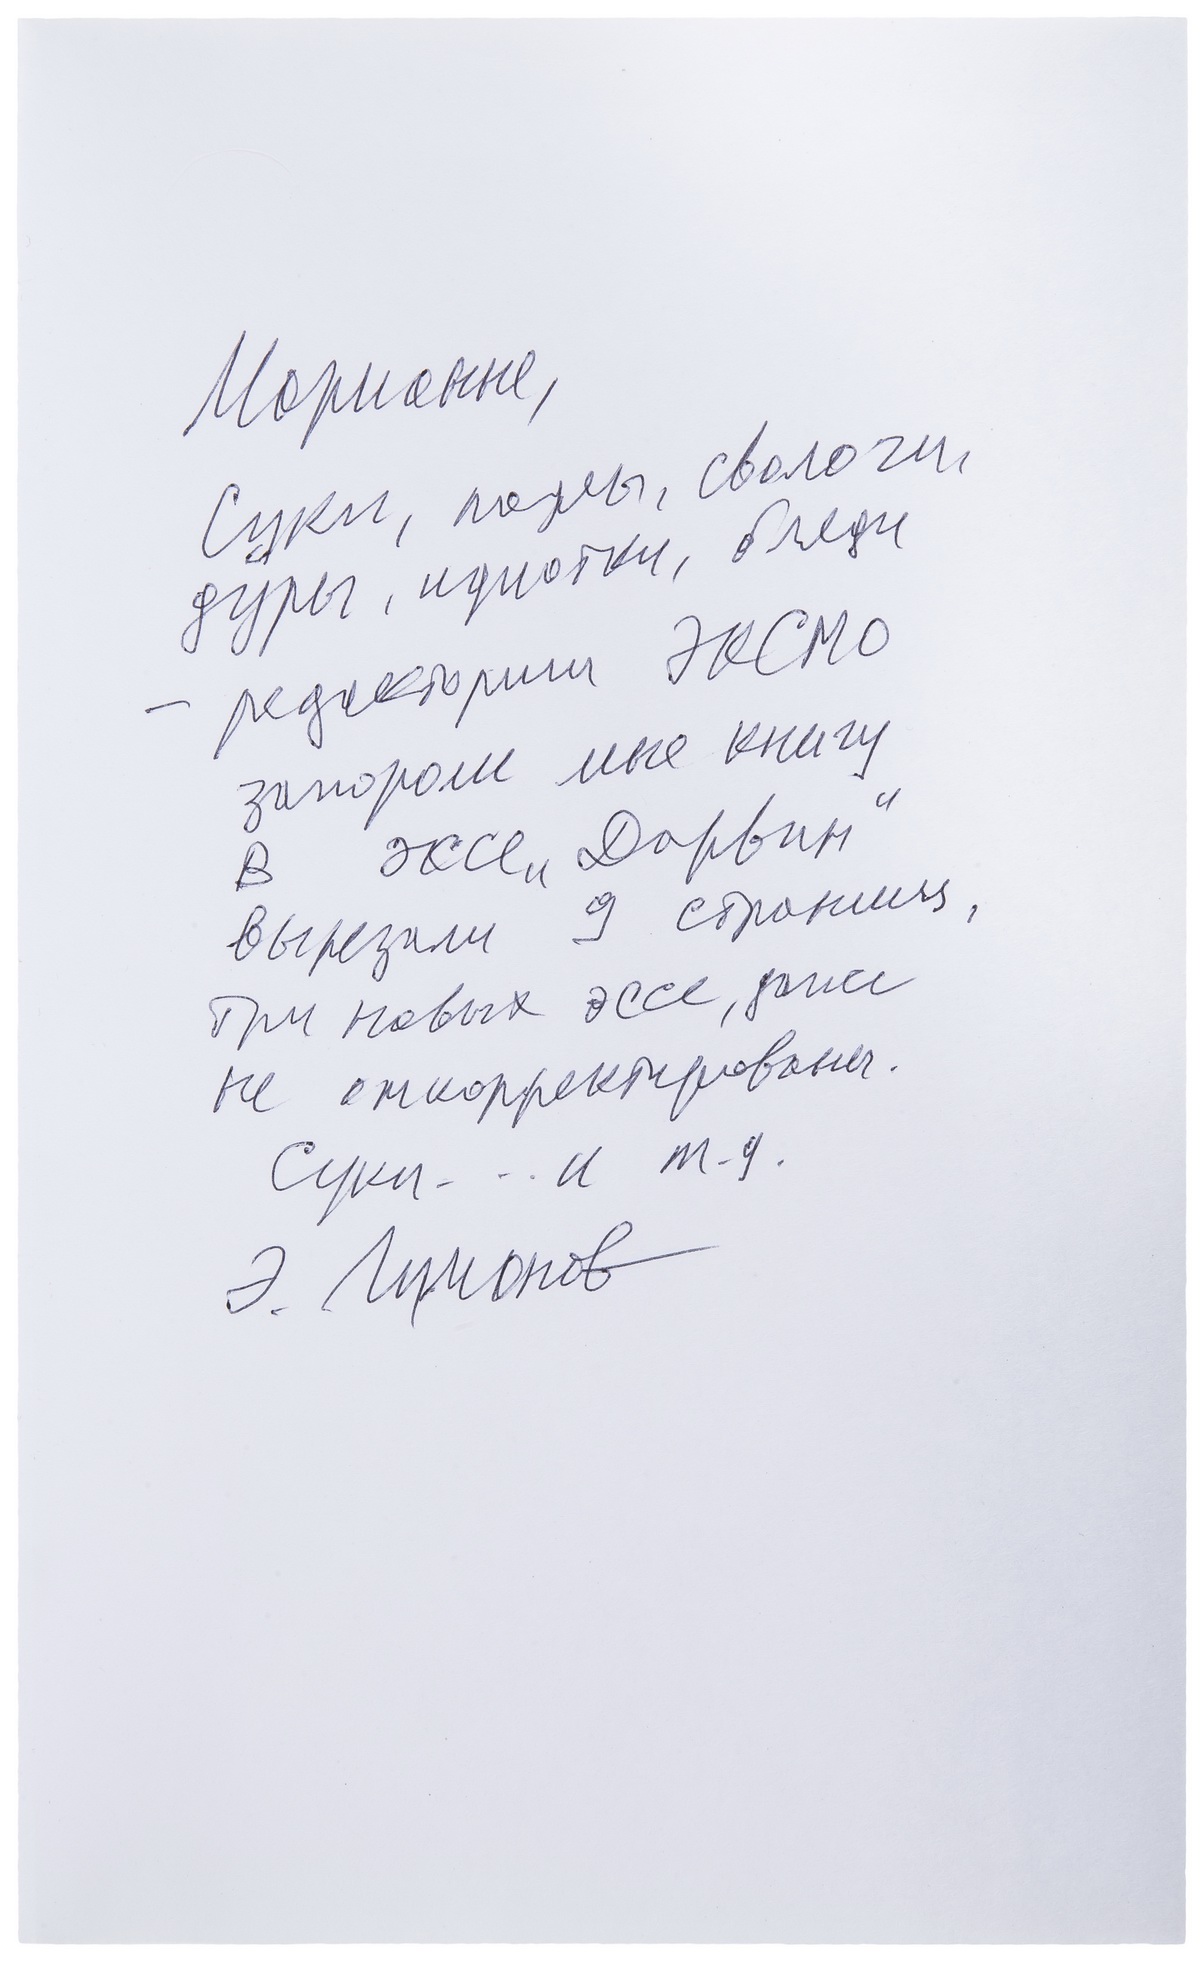 Марианне,
Суки, падлы, сволочи,
дуры, идиотки, бляди
– редакторши ЭКСМО
запороли мне книгу
В эссе „Дарвин“
вырезали 9 страниц,
три новых эссе, даже
не откорректированы.
Суки- -.. и т-д.
Э. Лимонов